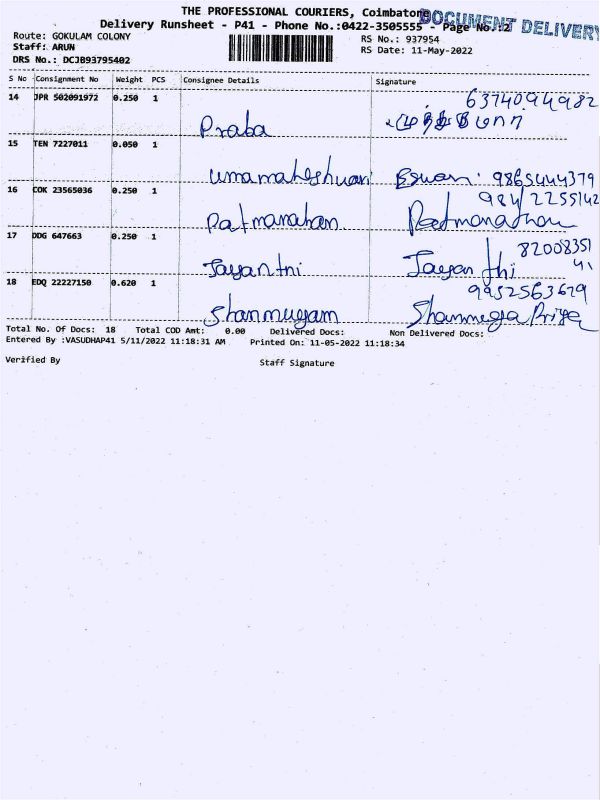 THE PROFESSIONAL COURIERS, Coimbatore
DOCUMENT DELIVERY
Delivery Runsheet - P41 - Phone No.:0422-3505555 - Page No.:2
Route: GOKULAM COLONY RS No.: 937954
Staff: ARUN RS Date: 11-May-2022
DRS No.: DCJB93795402
S No Consignment No Weight PCS Consignee Details Signature
14 JPR 502091972 0.250 1 6374094982
Praba
15 TEN 7227011 0.050 1
Umamaheshwari Eswari 9865444379
16 COK 23565036 0.250 1 984/2255142
Patmanaham Patmanathan
17 DDG 647663 0.250 1 82008351
41
Jayanthi Jayanthi
18 EDQ 22227150 0.620 1 9952563629
Shanmugam Shanmuga Priya
Total No. Of Docs: 18 Total COD Amt: 0.00 Delivered Docs: Non Delivered Docs:
Entered By :VASUDHAP41 5/11/2022 11:18:31 AM Printed On: 11-05-2022 11:18:34
Verified By Staff Signature